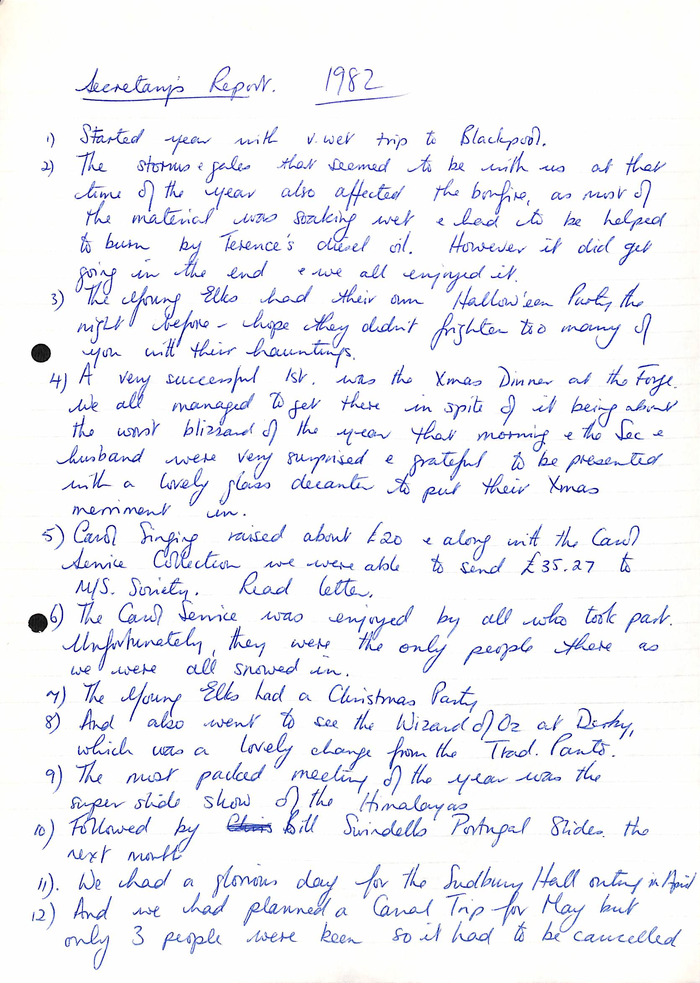 Secretary's Report. 1982
1) Started year with v. wet trip to Blackpool.
2) The storms & gales that seemed to be with us at that
time of the year also affected the bonfire, as most of
the material was soaking wet & had to be helped
to burn by Terence's diesel oil. However it did get
going in the end & we all enjoyed it.
3) The Young Elks had their own Hallow'een Party the
night before – hope they didn't frighten too many of
you with their hauntings.
4) A very successful 1st. was the Xmas Dinner at the Forge.
We all managed to get there in spite of it being about
the worst blizzard of the year that morning & the Sec &
husband were very surprised & grateful to be presented
with a lovely glass decanter to put their Xmas
merriment in.
5) Carol Singing raised about £20 & along with the Carol
Service Collection we were able to send £35.27 to
M/S. Society. Read letter.
6) The Carol Service was enjoyed by all who took part.
Unfortunately, they were the only people there as
we were all snowed in.
7) The Young Elks had a Christmas Party
8) And also went to see the Wizard of Oz at Derby,
which was a lovely change from the Trad. Panto.
9) The most packed meeting of the year was the
super slide show of the Himalayas
10) Followed by Chris Bill Swindells Portugal Slides the
next month
11). We had a glorious day for the Sudbury Hall outing in April
12) And we had planned a Canal Trip for May but
only 3 people were keen so it had to be cancelled